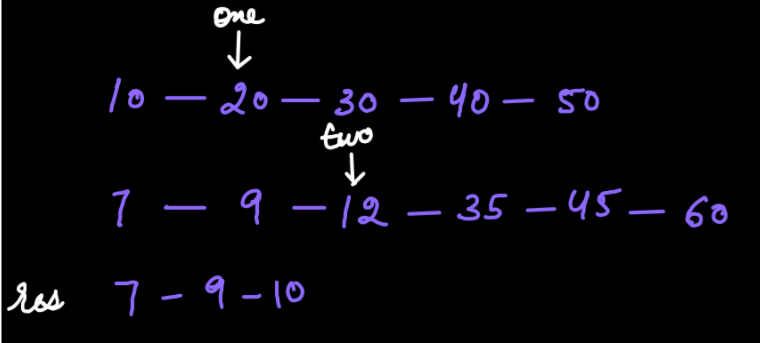 One
10 — 20 — 30 — 40 — 50
two
7 — 9 — 12 — 35 — 45 — 60
res 7 - 9 - 10